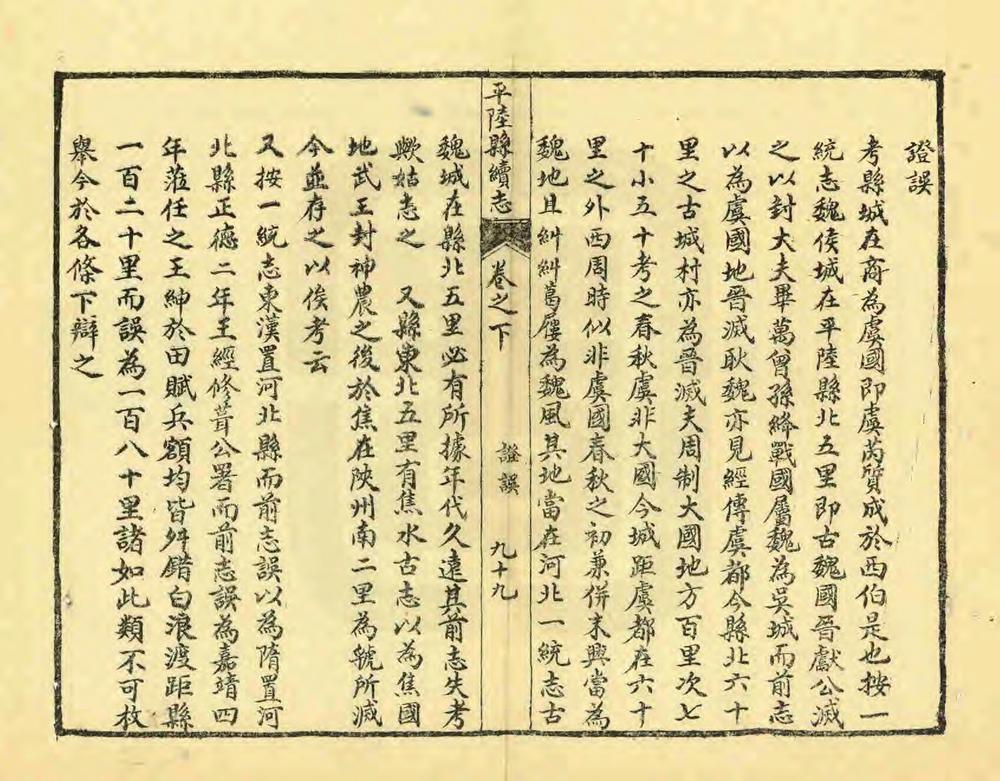 證誤
考縣城在商為虞國即虞芮質成於西伯是也按一
統志魏侯城在平陸縣北五里即古魏國晉獻公滅
之以封大夫畢萬曾孫絳戰國屬魏為吳城而前志
以為虞國地晉滅耿魏亦見經傳虞都今縣北六十
里之古城村亦為晉滅夫周制大國地方百里次七
十小五十考之春秋虞非大國今城距虞都在六十
里之外西周時似非虞國春秋之初兼併未興當為
魏地且糾糾葛屨為魏風其地當在河北一統志古
平陸縣續志
卷之下
證誤
九十九
魏城在縣北五里必有所據年代久遠其前志失考
歟姑志之 又縣東北五里有焦水古志以為焦國
地武王封神農之後於焦在陝州南二里為虢所滅
今並存之以俟考云
又按一統志東漢置河北縣而前志誤以為隋置河
北縣正德二年王經修葺公署而前志誤為嘉靖四
年蒞任之王紳於田賦兵額均皆舛錯白浪渡距縣
一百二十里而誤為一百八十里諸如此類不可枚
舉今於各條下辯之